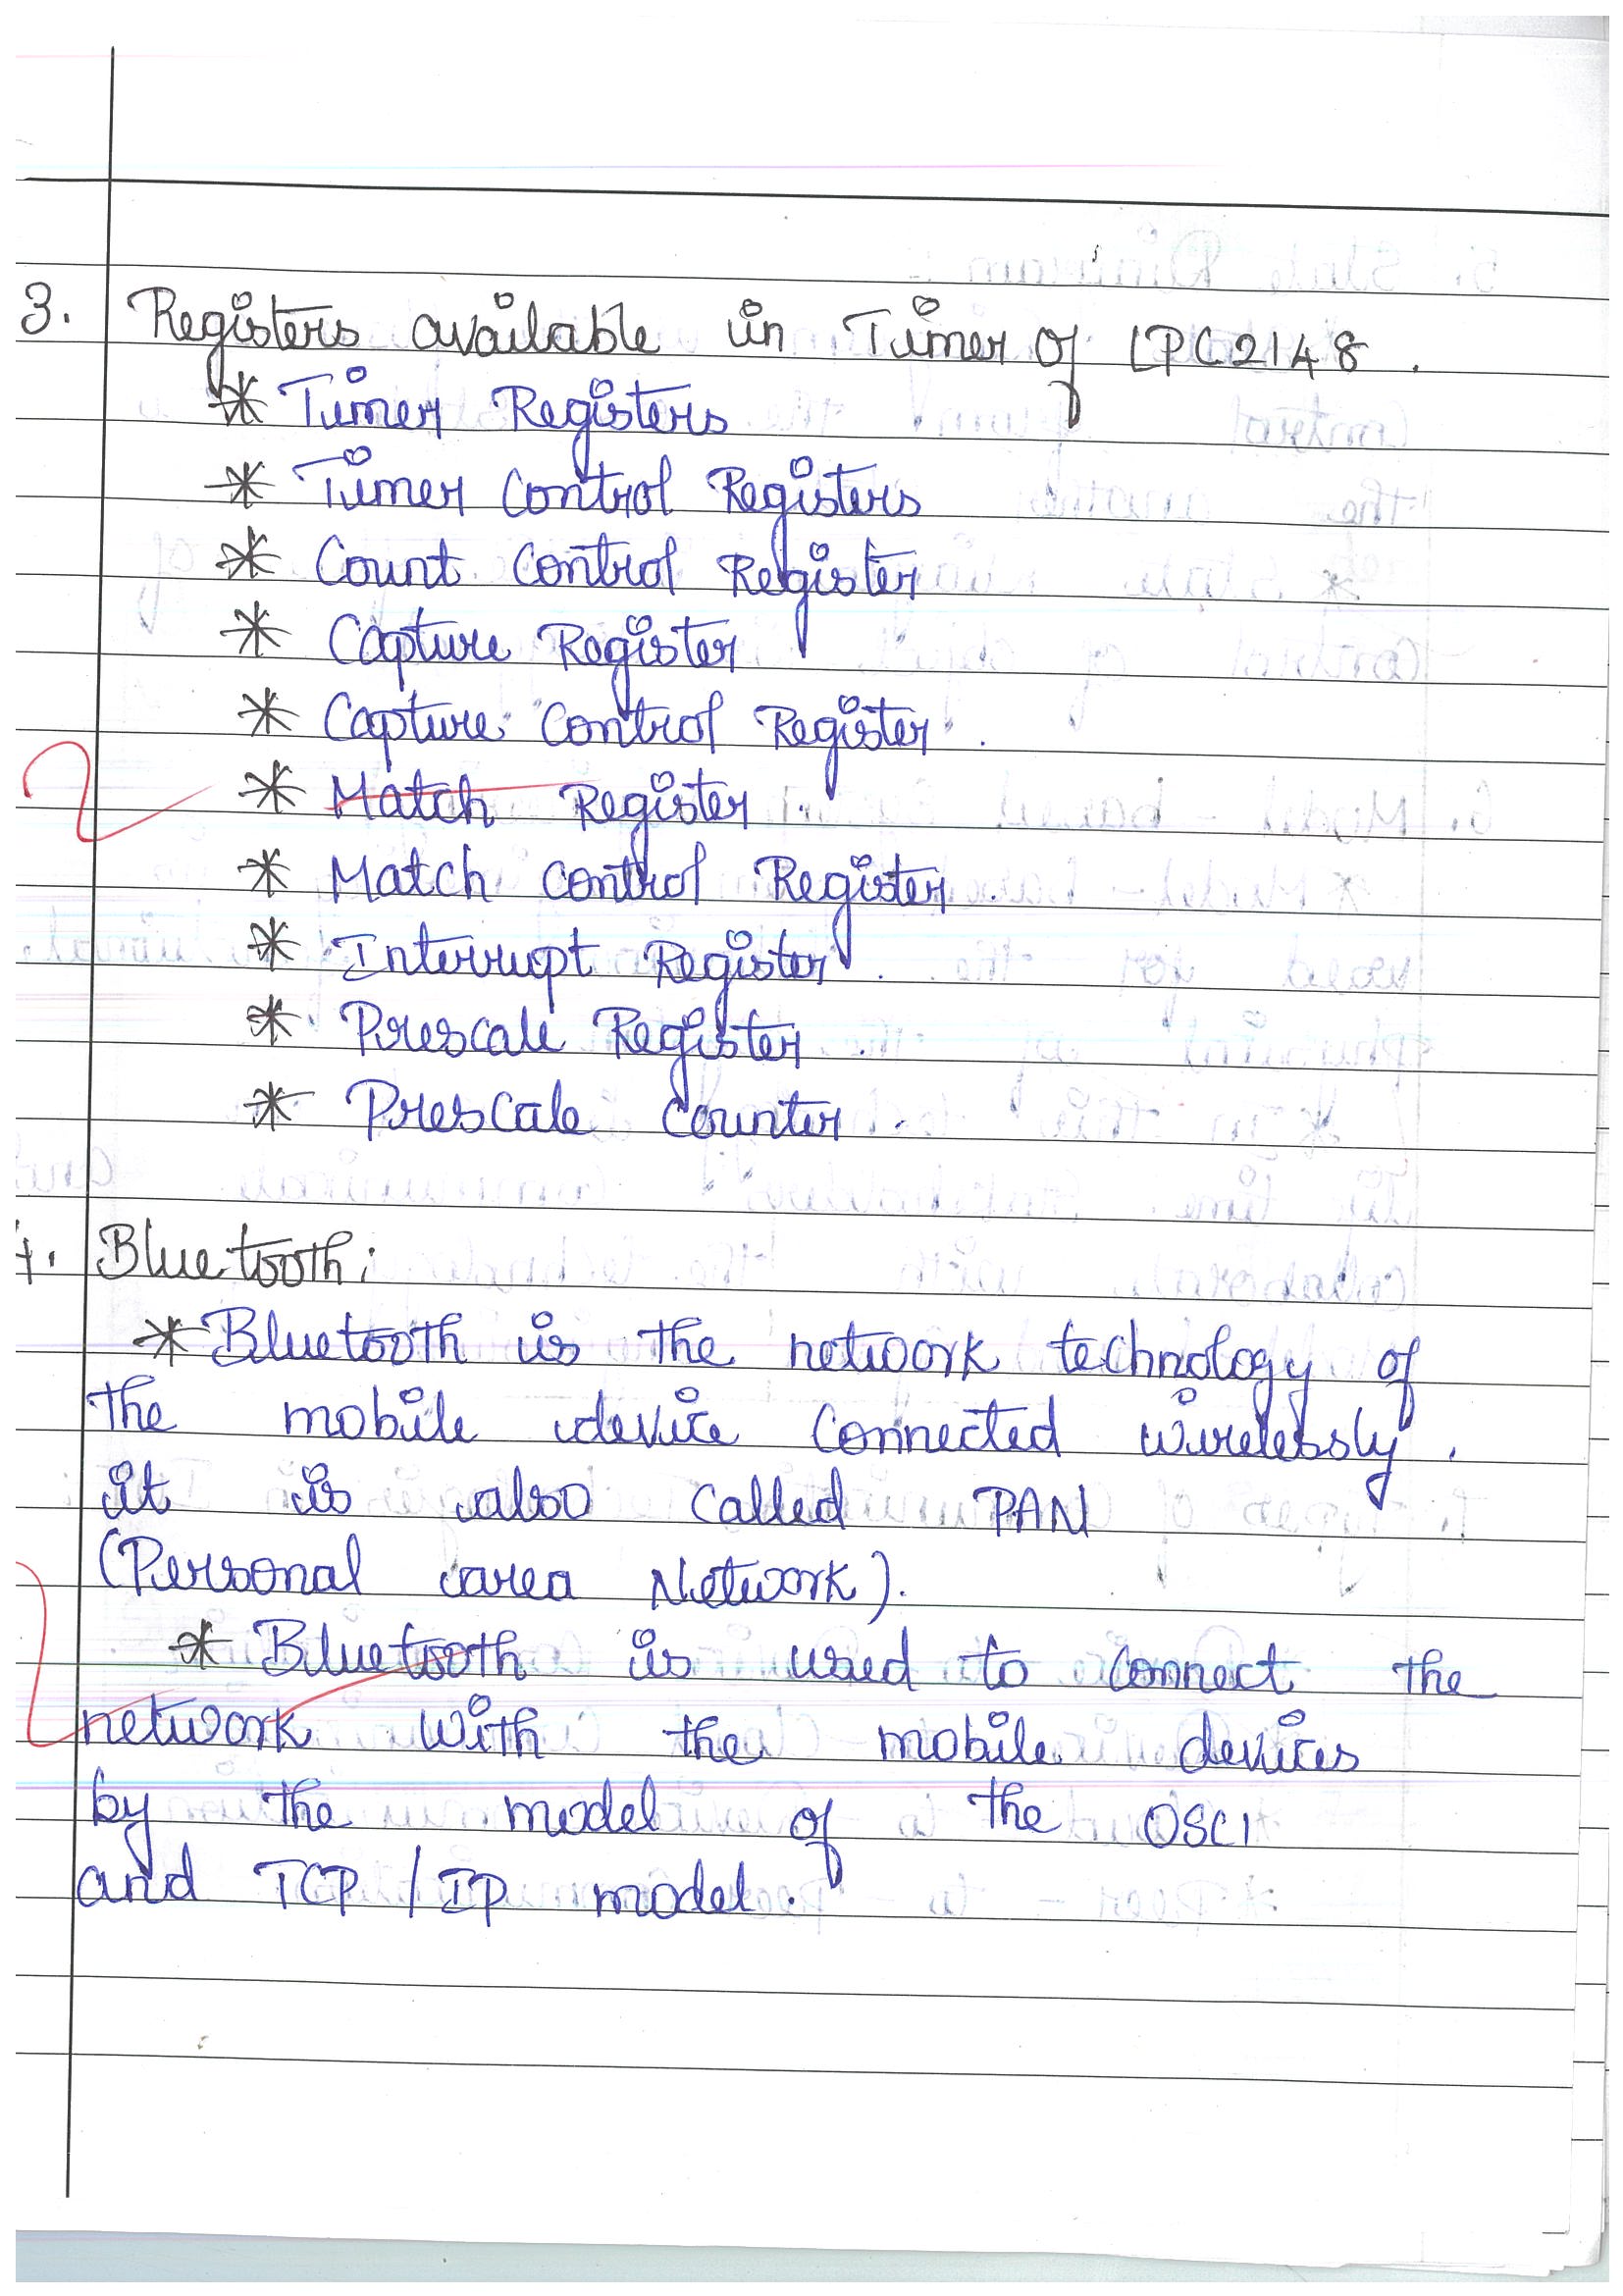 3. Registers available in Timer of LPC2148.
* Timer Registers
* Timer Control Registers
* Count Control Register
* Capture Register
* Capture Control Register.
* Match Register.
* Match control Register.
* Interrupt Register.
* Prescale Register.
* Prescale counter.
4. Bluetooth:
* Bluetooth is the network technology of
the mobile device connected wirelessly.
it is also called PAN
(Personal area Network).
* Bluetooth is used to connect the
network with the mobile devices
by the model of the OSCI
and TCP/IP model.